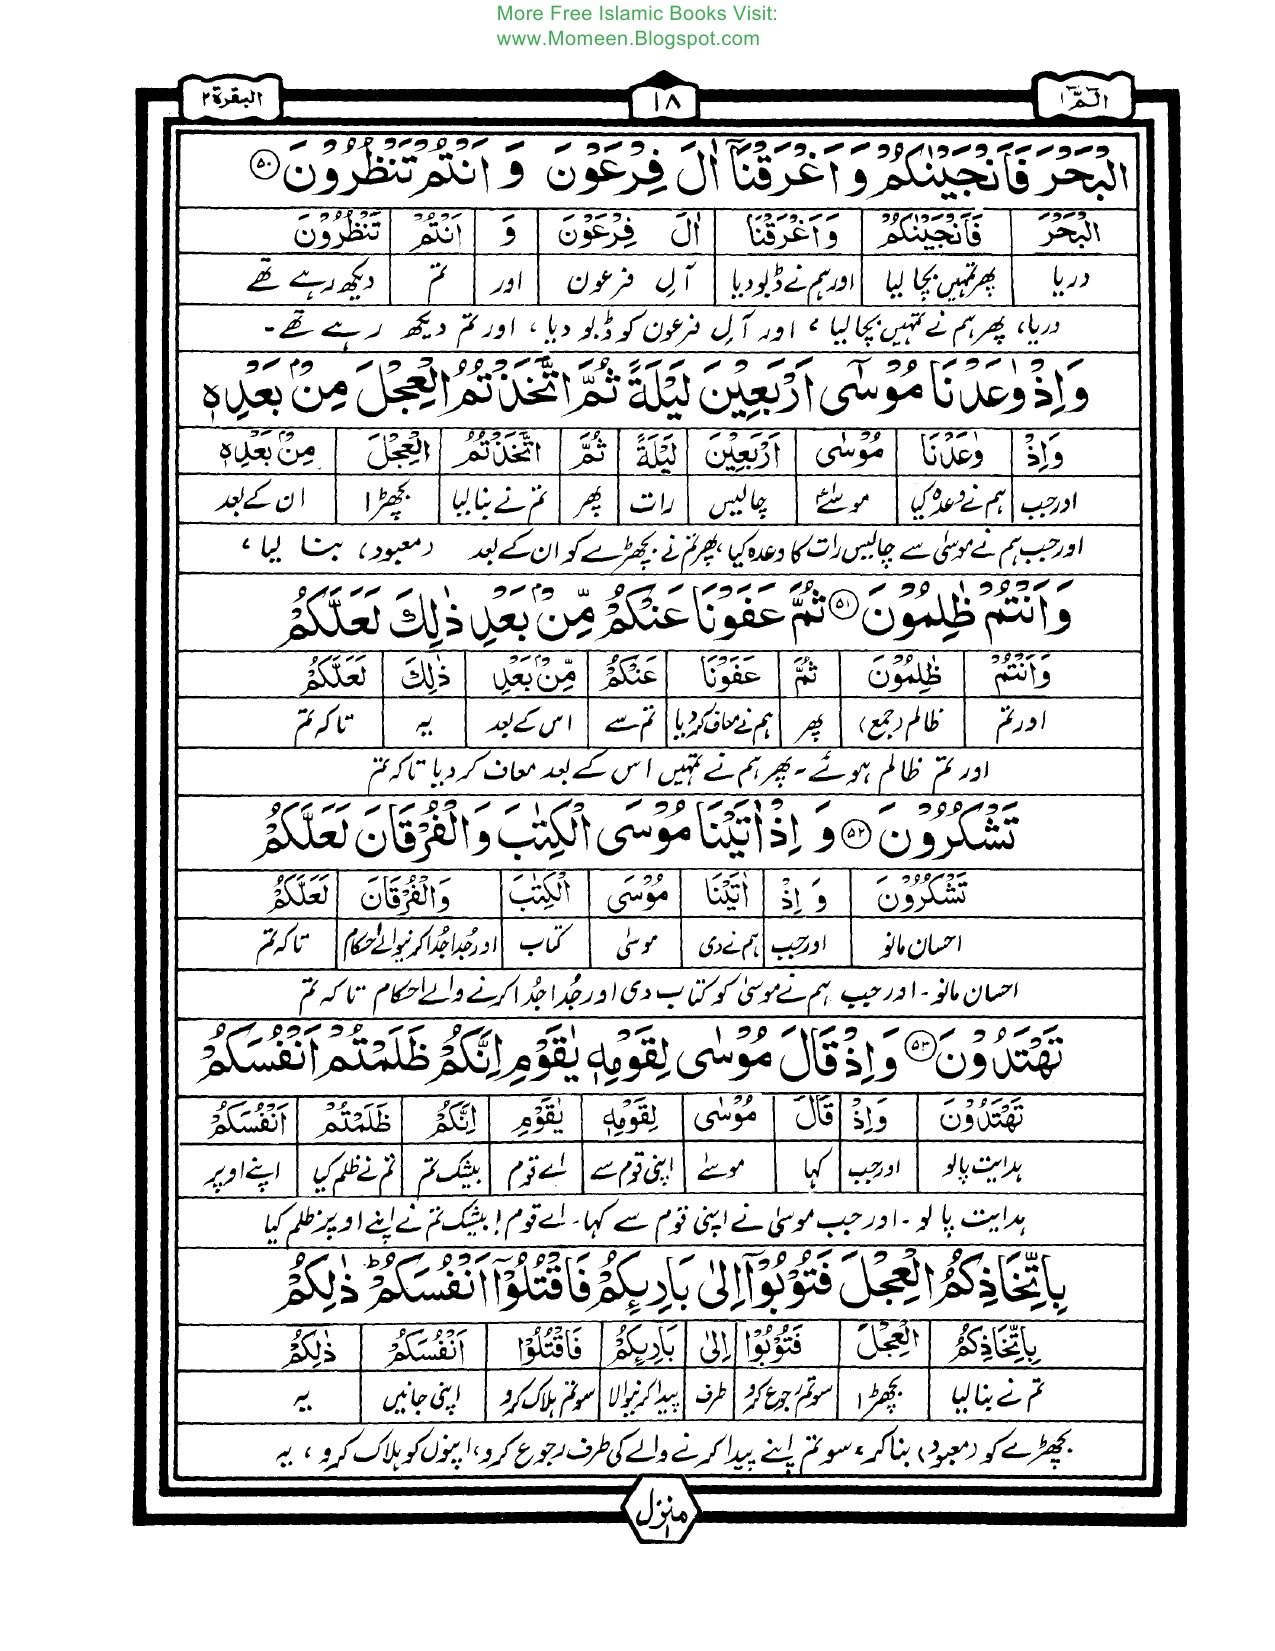 More Free Islamic Books Visit:
www.Momeen.Blogspot.com
الٓمّٓ ۱
۱۸
البقرة ۲
الْبَحْرَ فَاَنْجَيْنٰكُمْ وَاَغْرَقْنَآ اٰلَ فِرْعَوْنَ وَ اَنْتُمْ تَنْظُرُوْنَ ۝۵۰
الْبَحْرَ فَاَنْجَيْنٰكُمْ وَاَغْرَقْنَا اٰلَ فِرْعَوْنَ وَ اَنْتُمْ تَنْظُرُوْنَ
دریا پھر تمہیں بچا لیا اور ہم نے ڈبو دیا آلِ فرعون اور تم دیکھ رہے تھے
دریا، پھر ہم نے تمہیں بچا لیا، اور آلِ فرعون کو ڈبو دیا، اور تم دیکھ رہے تھے۔
وَاِذْ وٰعَدْنَا مُوْسٰٓى اَرْبَعِيْنَ لَيْلَةً ثُمَّ اتَّخَذْتُمُ الْعِجْلَ مِنْۢ بَعْدِهٖ
وَاِذْ وٰعَدْنَا مُوْسٰى اَرْبَعِيْنَ لَيْلَةً ثُمَّ اتَّخَذْتُمُ الْعِجْلَ مِنْۢ بَعْدِهٖ
اور جب ہم نے وعدہ کیا موسیٰ چالیس رات پھر تم نے بنا لیا بچھڑا ان کے بعد
اور جب ہم نے موسیٰ سے چالیس رات کا وعدہ کیا، پھر تم نے بچھڑے کو ان کے بعد (معبود) بنا لیا،
وَاَنْتُمْ ظٰلِمُوْنَ ۝۵۱ ثُمَّ عَفَوْنَا عَنْكُمْ مِّنْۢ بَعْدِ ذٰلِكَ لَعَلَّكُمْ
وَاَنْتُمْ ظٰلِمُوْنَ ثُمَّ عَفَوْنَا عَنْكُمْ مِّنْۢ بَعْدِ ذٰلِكَ لَعَلَّكُمْ
اور تم ظالم (جمع) پھر ہم نے معاف کر دیا تم سے اس کے بعد یہ تاکہ تم
اور تم ظالم ہوئے۔ پھر ہم نے تمہیں اس کے بعد معاف کر دیا تاکہ تم
تَشْكُرُوْنَ ۝۵۲ وَ اِذْ اٰتَيْنَا مُوْسَى الْكِتٰبَ وَالْفُرْقَانَ لَعَلَّكُمْ
تَشْكُرُوْنَ وَ اِذْ اٰتَيْنَا مُوْسَى الْكِتٰبَ وَالْفُرْقَانَ لَعَلَّكُمْ
احسان مانو اور جب ہم نے دی موسیٰ کتاب اور جُدا جُدا کرنیوالے احکام تاکہ تم
احسان مانو۔ اور جب ہم نے موسیٰ کو کتاب دی اور جُدا جُدا کرنے والے احکام تاکہ تم
تَهْتَدُوْنَ ۝۵۳ وَاِذْ قَالَ مُوْسٰى لِقَوْمِهٖ يٰقَوْمِ اِنَّكُمْ ظَلَمْتُمْ اَنْفُسَكُمْ
تَهْتَدُوْنَ وَاِذْ قَالَ مُوْسٰى لِقَوْمِهٖ يٰقَوْمِ اِنَّكُمْ ظَلَمْتُمْ اَنْفُسَكُمْ
ہدایت پالو اور جب کہا موسیٰ اپنی قوم سے اے قوم بیشک تم تم نے ظلم کیا اپنے اوپر
ہدایت پا لو۔ اور جب موسیٰ نے اپنی قوم سے کہا۔ اے قوم! بیشک تم نے اپنے اوپر ظلم کیا
بِاتِّخَاذِكُمُ الْعِجْلَ فَتُوْبُوْٓا اِلٰى بَارِىِٕكُمْ فَاقْتُلُوْٓا اَنْفُسَكُمْ ؕ ذٰلِكُمْ
بِاتِّخَاذِكُمُ الْعِجْلَ فَتُوْبُوْا اِلٰى بَارِىِٕكُمْ فَاقْتُلُوْا اَنْفُسَكُمْ ذٰلِكُمْ
تم نے بنا لیا بچھڑا سو تم رجوع کرو طرف پیدا کرنیوالا سو تم ہلاک کرو اپنی جانیں یہ
بچھڑے کو (معبود) بنا کر، سو تم اپنے پیدا کرنے والے کی طرف رجوع کرو، اپنوں کو ہلاک کرو، یہ
منزل ۱